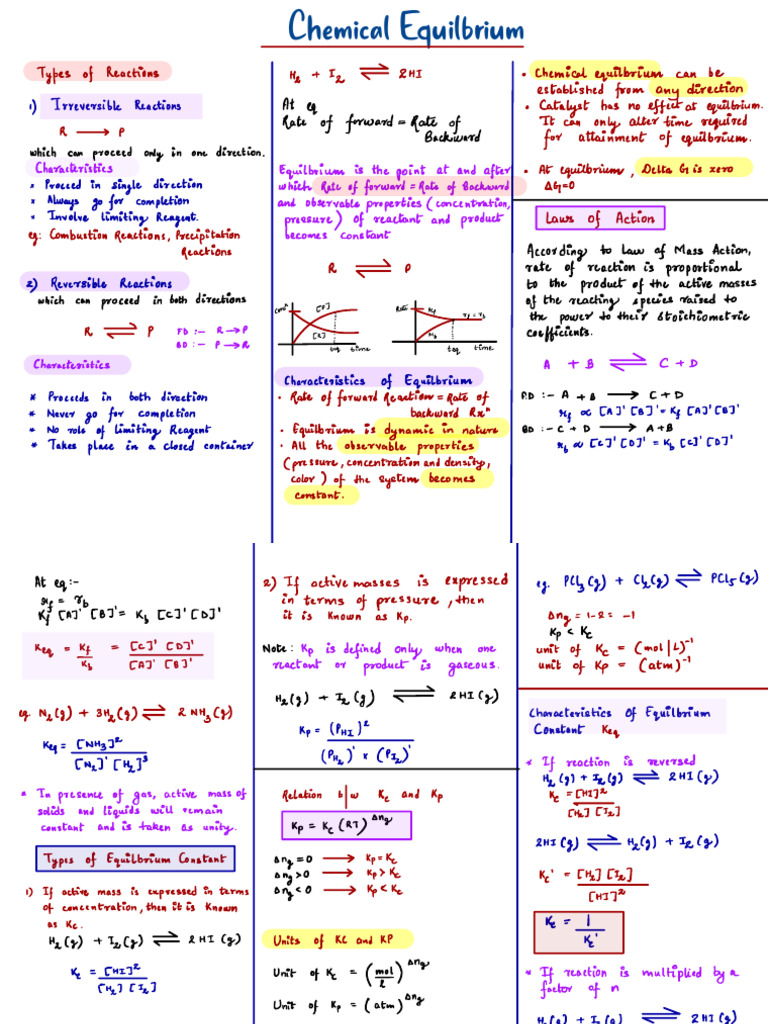 Chemical Equilbrium
Types of Reactions
1) Irreversible Reactions
R ⟶ P
which can proceed only in one direction.
Characteristics
* Proceed in single direction
* Always go for completion
* Involve limiting Reagent.
eg: Combustion Reactions, Precipitation
Reactions
2) Reversible Reactions
which can proceed in both directions
R ⇌ P FD :- R→P
BD :- P→R
Characteristics
* Proceeds in both direction
* Never go for completion
* No role of limiting Reagent
* Takes place in a closed container
H₂ + I₂ ⇌ 2HI
At eq
Rate of forward = Rate of
Backward
Equilbrium is the point at and after
which Rate of forward = Rate of Backward
and observable properties (concentration,
pressure) of reactant and product
becomes constant
R ⇌ P
concⁿ [P] [R] teq time
Rate rf = rb teq time
Characteristics of Equilbrium
• Rate of forward Reaction = Rate of
backward Rxⁿ
• Equilbrium is dynamic in nature
• All the observable properties
(pressure, concentration and density,
color) of the system becomes
constant.
• Chemical equilbrium can be
established from any direction
• Catalyst has no effect at equilbrium.
It can only alter time required
for attainment of equilbrium.
• At equilbrium, Delta G is zero
ΔG=0
Laws of Action
According to Law of Mass Action,
rate of reaction is proportional
to the product of the active masses
of the reacting species raised to
the power to their stoichiometric
coefficients.
A + B ⇌ C + D
FD :- A + B ⟶ C + D
rf ∝ [A]¹ [B]¹ = Kf [A]¹ [B]¹
BD :- C + D ⟶ A+B
rb ∝ [C]¹ [D]¹ = Kb [C]¹ [D]¹
At eq:-
rf = rb
Kf [A]¹ [B]¹ = Kb [C]¹ [D]¹
Keq = Kf/Kb = [C]¹ [D]¹ / [A]¹ [B]¹
eg N₂(g) + 3H₂(g) ⇌ 2 NH₃(g)
Keq = [NH₃]² / [N₂]¹ [H₂]³
* In presence of gas, active mass of
solids and liquids will remain
constant and is taken as unity.
Types of Equilbrium Constant
1) If active mass is expressed in terms
of concentration, then it is known
as Kc.
H₂(g) + I₂(g) ⇌ 2 HI (g)
Kc = [HI]² / [H₂] [I₂]
2) If active masses is expressed
in terms of pressure, then
it is known as Kp.
Note: Kp is defined only when one
reactant or product is gaseous.
H₂(g) + I₂(g) ⇌ 2HI(g)
Kp = (PHI)² / (PH₂)¹ × (PI₂)¹
Relation b/w Kc and Kp
Kp = Kc (RT)^Δng
Δng = 0 ⟶ Kp = Kc
Δng > 0 ⟶ Kp > Kc
Δng < 0 ⟶ Kp < Kc
Units of KC and KP
Unit of Kc = (mol/L)^Δng
Unit of Kp = (atm)^Δng
eg. PCl₃(g) + Cl₂(g) ⇌ PCl₅(g)
Δng = 1-2 = -1
Kp < Kc
unit of Kc = (mol/L)⁻¹
unit of Kp = (atm)⁻¹
Characteristics Of Equilbrium
Constant Keq
* If reaction is reversed
H₂(g) + I₂(g) ⇌ 2HI(g)
Kc = [HI]² / [H₂] [I₂]
2HI(g) ⇌ H₂(g) + I₂(g)
Kc' = [H₂] [I₂] / [HI]²
Kc = 1 / Kc'
* If reaction is multiplied by a
factor of n
H₂(g) + I₂(g) ⇌ 2HI(g)